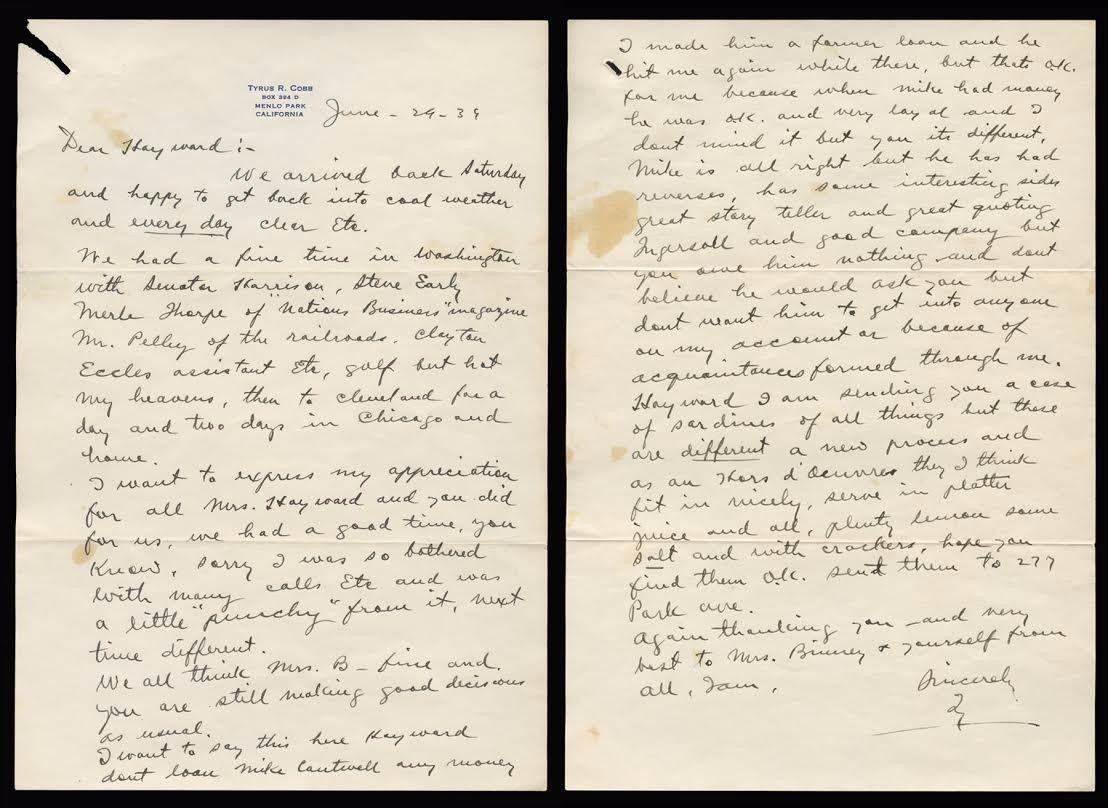 TYRUS R. COBB
BOX 394 D
MENLO PARK
CALIFORNIA
June - 29 - 39
Dear Hayward :-
We arrived back Saturday
and happy to get back into cool weather
and every day clear Etc.
We had a fine time in Washington
with Senator Harrison, Steve Early
Merle Thorpe of "Nations Business" magazine
Mr. Pelley of the railroads, Clayton
Eccles assistant Etc, golf but hot
my heavens, then to Cleveland for a
day and two days in Chicago and
home.
I want to express my appreciation
for all Mrs. Hayward and you did
for us, we had a good time, you
know, sorry I was so bothered
with many calls Etc and was
a little "punchy" from it, next
time different.
We all think Mrs. B - fine and
you are still making good decisions
as usual.
I want to say this here Hayward
dont loan Mike Cantwell any money
I made him a former loan and he
hit me again while there, but thats O.K.
for me because when Mike had money
he was O.K. and very loyal and I
dont mind it but you its different,
Mike is all right but he has had
reverses, has some interesting sides
great story teller and great quoting
Ingersoll and good company but
you owe him nothing and dont
believe he would ask you but
dont want him to get into anyone
on my account or because of
acquaintances formed through me.
Hayward I am sending you a case
of sardines of all things but these
are different a new process and
as an Hors d'Oeuvres they I think
fit in nicely, serve in platter
juice and all, plenty lemon some
salt and with crackers, hope you
find them O.K. sent them to 277
Park ave.
Again thanking you - and very
best to Mrs. Binney & yourself from
all, I am,
Sincerely
Ty